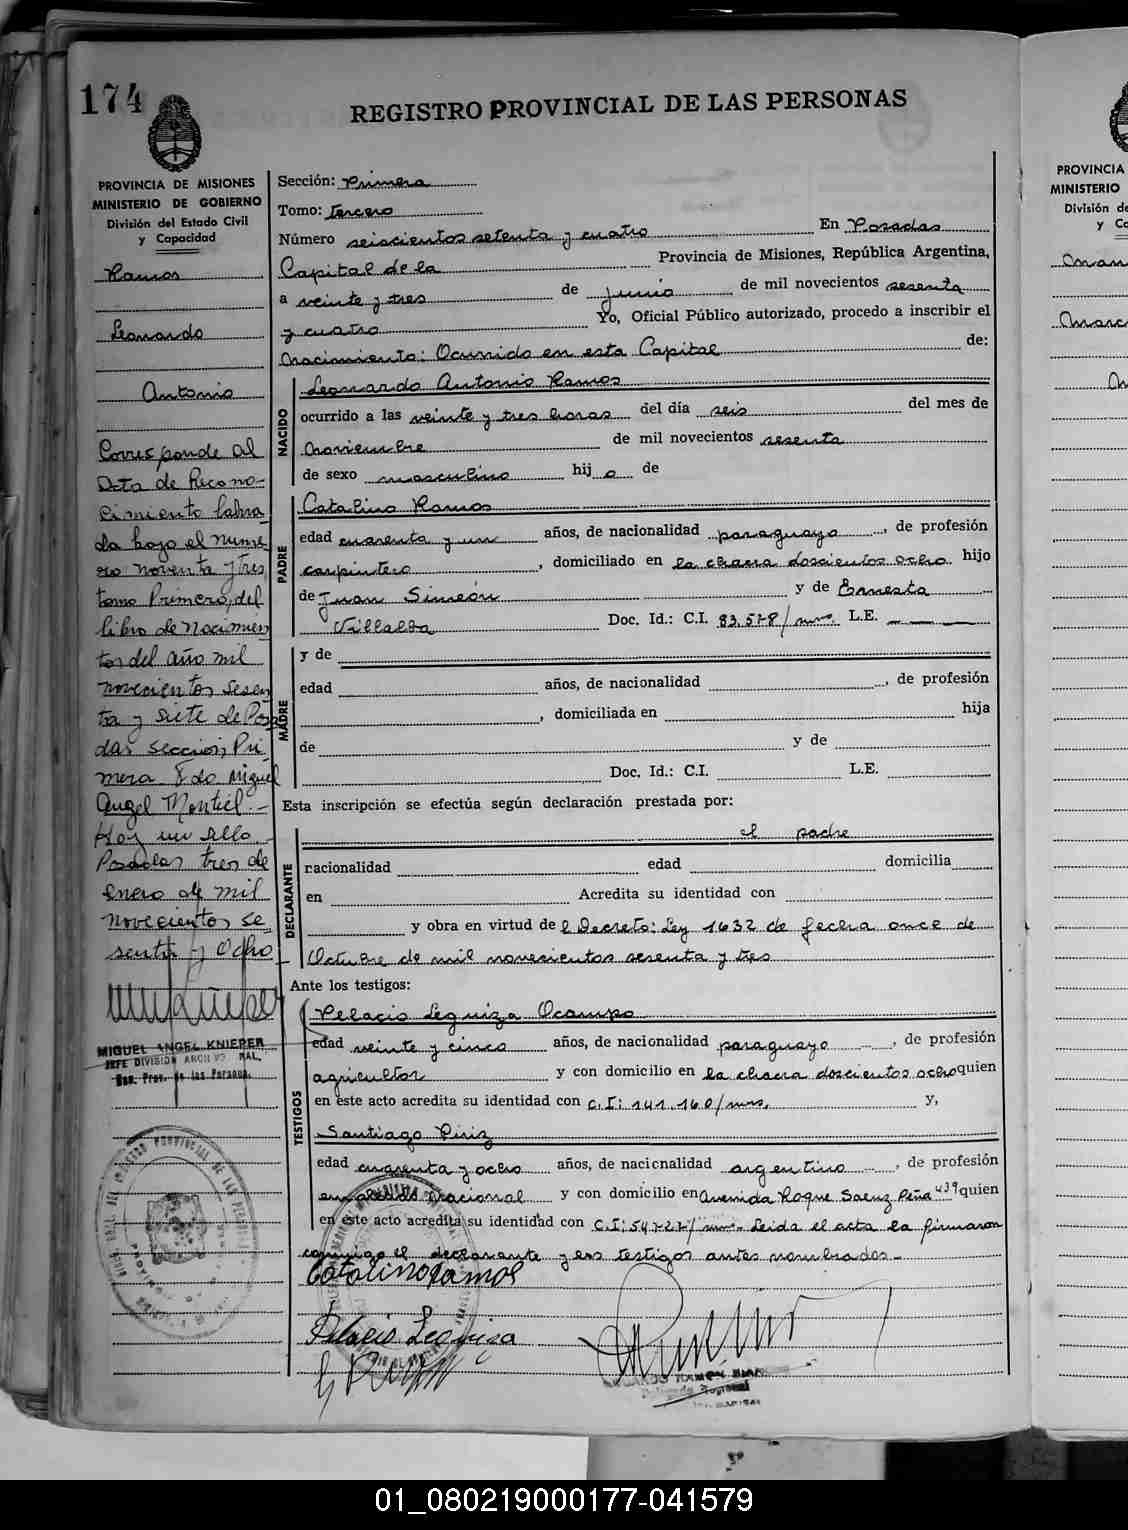 174
REGISTRO PROVINCIAL DE LAS PERSONAS
PROVINCIA DE MISIONES
MINISTERIO DE GOBIERNO
División del Estado Civil
y Capacidad
Ramos
Leonardo
Antonio
Corresponde al
Acta de Recono-
cimiento labra-
da bajo el nume-
ro noventa y tres
tomo Primero, del
libro de Nacimien
tos del año mil
novecientos sesen
ta y siete de Posa
das seccion Pri
mera. Fdo Miguel
Angel Montiel.-
Hay un sello -
Posadas tres de
enero de mil
novecientos se
senta y Ocho -
MIGUEL ANGEL KNIEPER
JEFE DIVISION ARCHIVO
Reg. Prov. de las Personas
Sección: Primera
Tomo: tercero
Número seiscientos setenta y cuatro En Posadas
Capital de la Provincia de Misiones, República Argentina,
a veinte y tres de junio de mil novecientos sesenta
y cuatro Yo, Oficial Público autorizado, procedo a inscribir el
nacimiento: Ocurrido en esta Capital de:
NACIDO
Leonardo Antonio Ramos
ocurrido a las veinte y tres horas del día seis del mes de
noviembre de mil novecientos sesenta
de sexo masculino hijo de
PADRE
Catalino Ramos
edad cuarenta y un años, de nacionalidad paraguayo, de profesión
carpintero, domiciliado en la chacra doscientos ocho hijo
de Juan Simeón y de Ernesta
Villalba Doc. Id.: C.I. 83.578/mrs. L.E. — — —
MADRE
y de
edad años, de nacionalidad , de profesión
, domiciliada en hija
de y de
Doc. Id.: C.I. L.E.
Esta inscripción se efectúa según declaración prestada por:
DECLARANTE
el padre
nacionalidad edad domicilia
en Acredita su identidad con
y obra en virtud del Decreto: Ley 1632 de fecha once de
Octubre de mil novecientos sesenta y tres
Ante los testigos:
TESTIGOS
Pelacio Leguiza Ocampo
edad veinte y cinco años, de nacionalidad paraguayo, de profesión
agricultor y con domicilio en la chacra doscientos ocho quien
en este acto acredita su identidad con C.I: 141.160/mrs. y,
Santiago Piriz
edad cuarenta y ocho años, de nacionalidad argentino, de profesión
empleado Nacional y con domicilio en Avenida Roque Saenz Peña 439 quien
en este acto acredita su identidad con C.I: 54727/mrs- Leida el acta la firmaron
conmigo el declarante y los testigos antes nombrados-
Catalino Ramos
Pelacio Leguiza
Delegado Regional
PROVINCIA
MINISTERIO
División de
y Ca
01_080219000177-041579